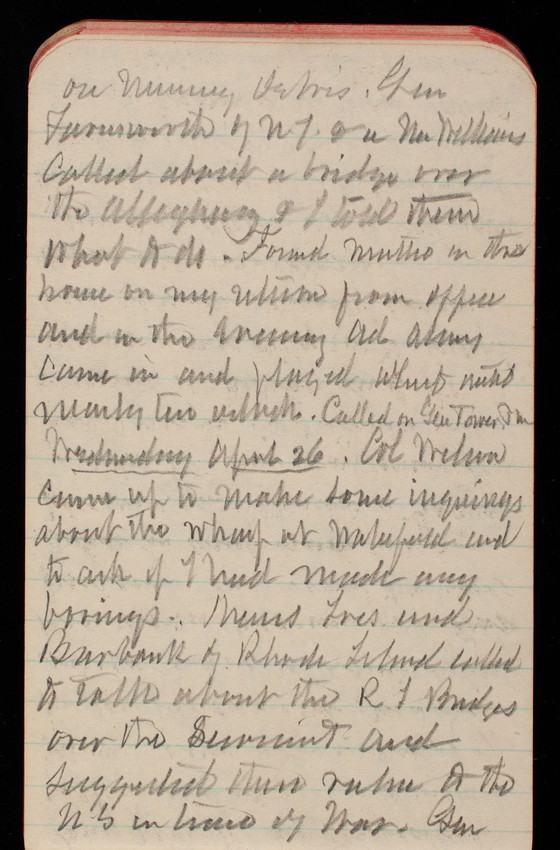 on Mining Debris. Gen
Farnsworth of N.Y. & a Mr Williams
Called about a bridge over
the Alleghany & I told them
what to do. Found Mattie in the
house on my return from office
and in the evening Col Adams
came in and played whist until
nearly ten oclock. Called on Gen Tower
Wednesday April 26. Col Wilson
came up to make some inquirys
about the Wharf at Wakefield and
to ask if I had made any
borings. Messrs and
Burbank of Rhode Island called
to talk about the R I Bridges
over the and
suggested their value to the
U S in time of War. Gen